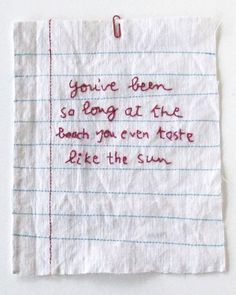 you've been
so long at the
beach you even taste
like the sun